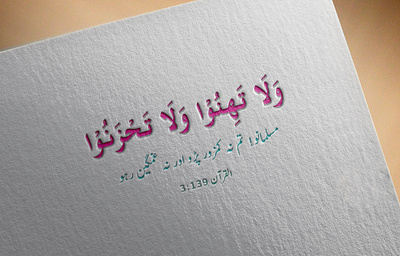 وَلَا تَهِنُوْا وَلَا تَحْزَنُوْا
مسلمانوا تم نہ کمزور پڑو اور نہ غمگین رہو
القرآن 3:139